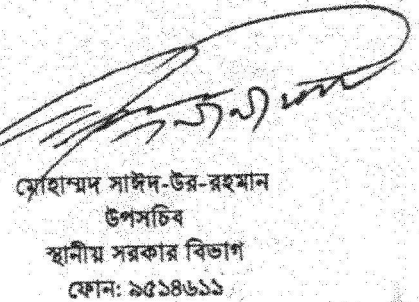 মোহাম্মদ সাঈদ-উর-রহমান
উপসচিব
স্থানীয় সরকার বিভাগ
ফোন: ৯৫১৪৬১১